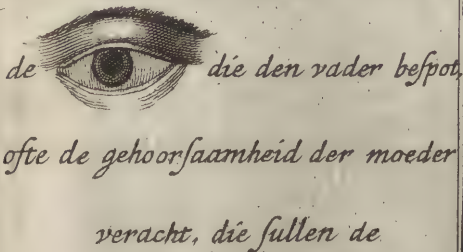 de die den vader beſpot,
ofte de gehoorſaamheid der moeder
veracht, die ſullen de